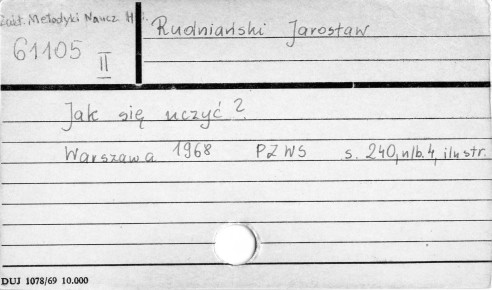 Zakł. Metodyki Naucz. H i.
61105
II
Rudniański Jarosław
Jak się uczyć?
Warszawa 1968 PZWS s. 240, nlb. 4, ilustr.
DUJ 1078/69 10.000